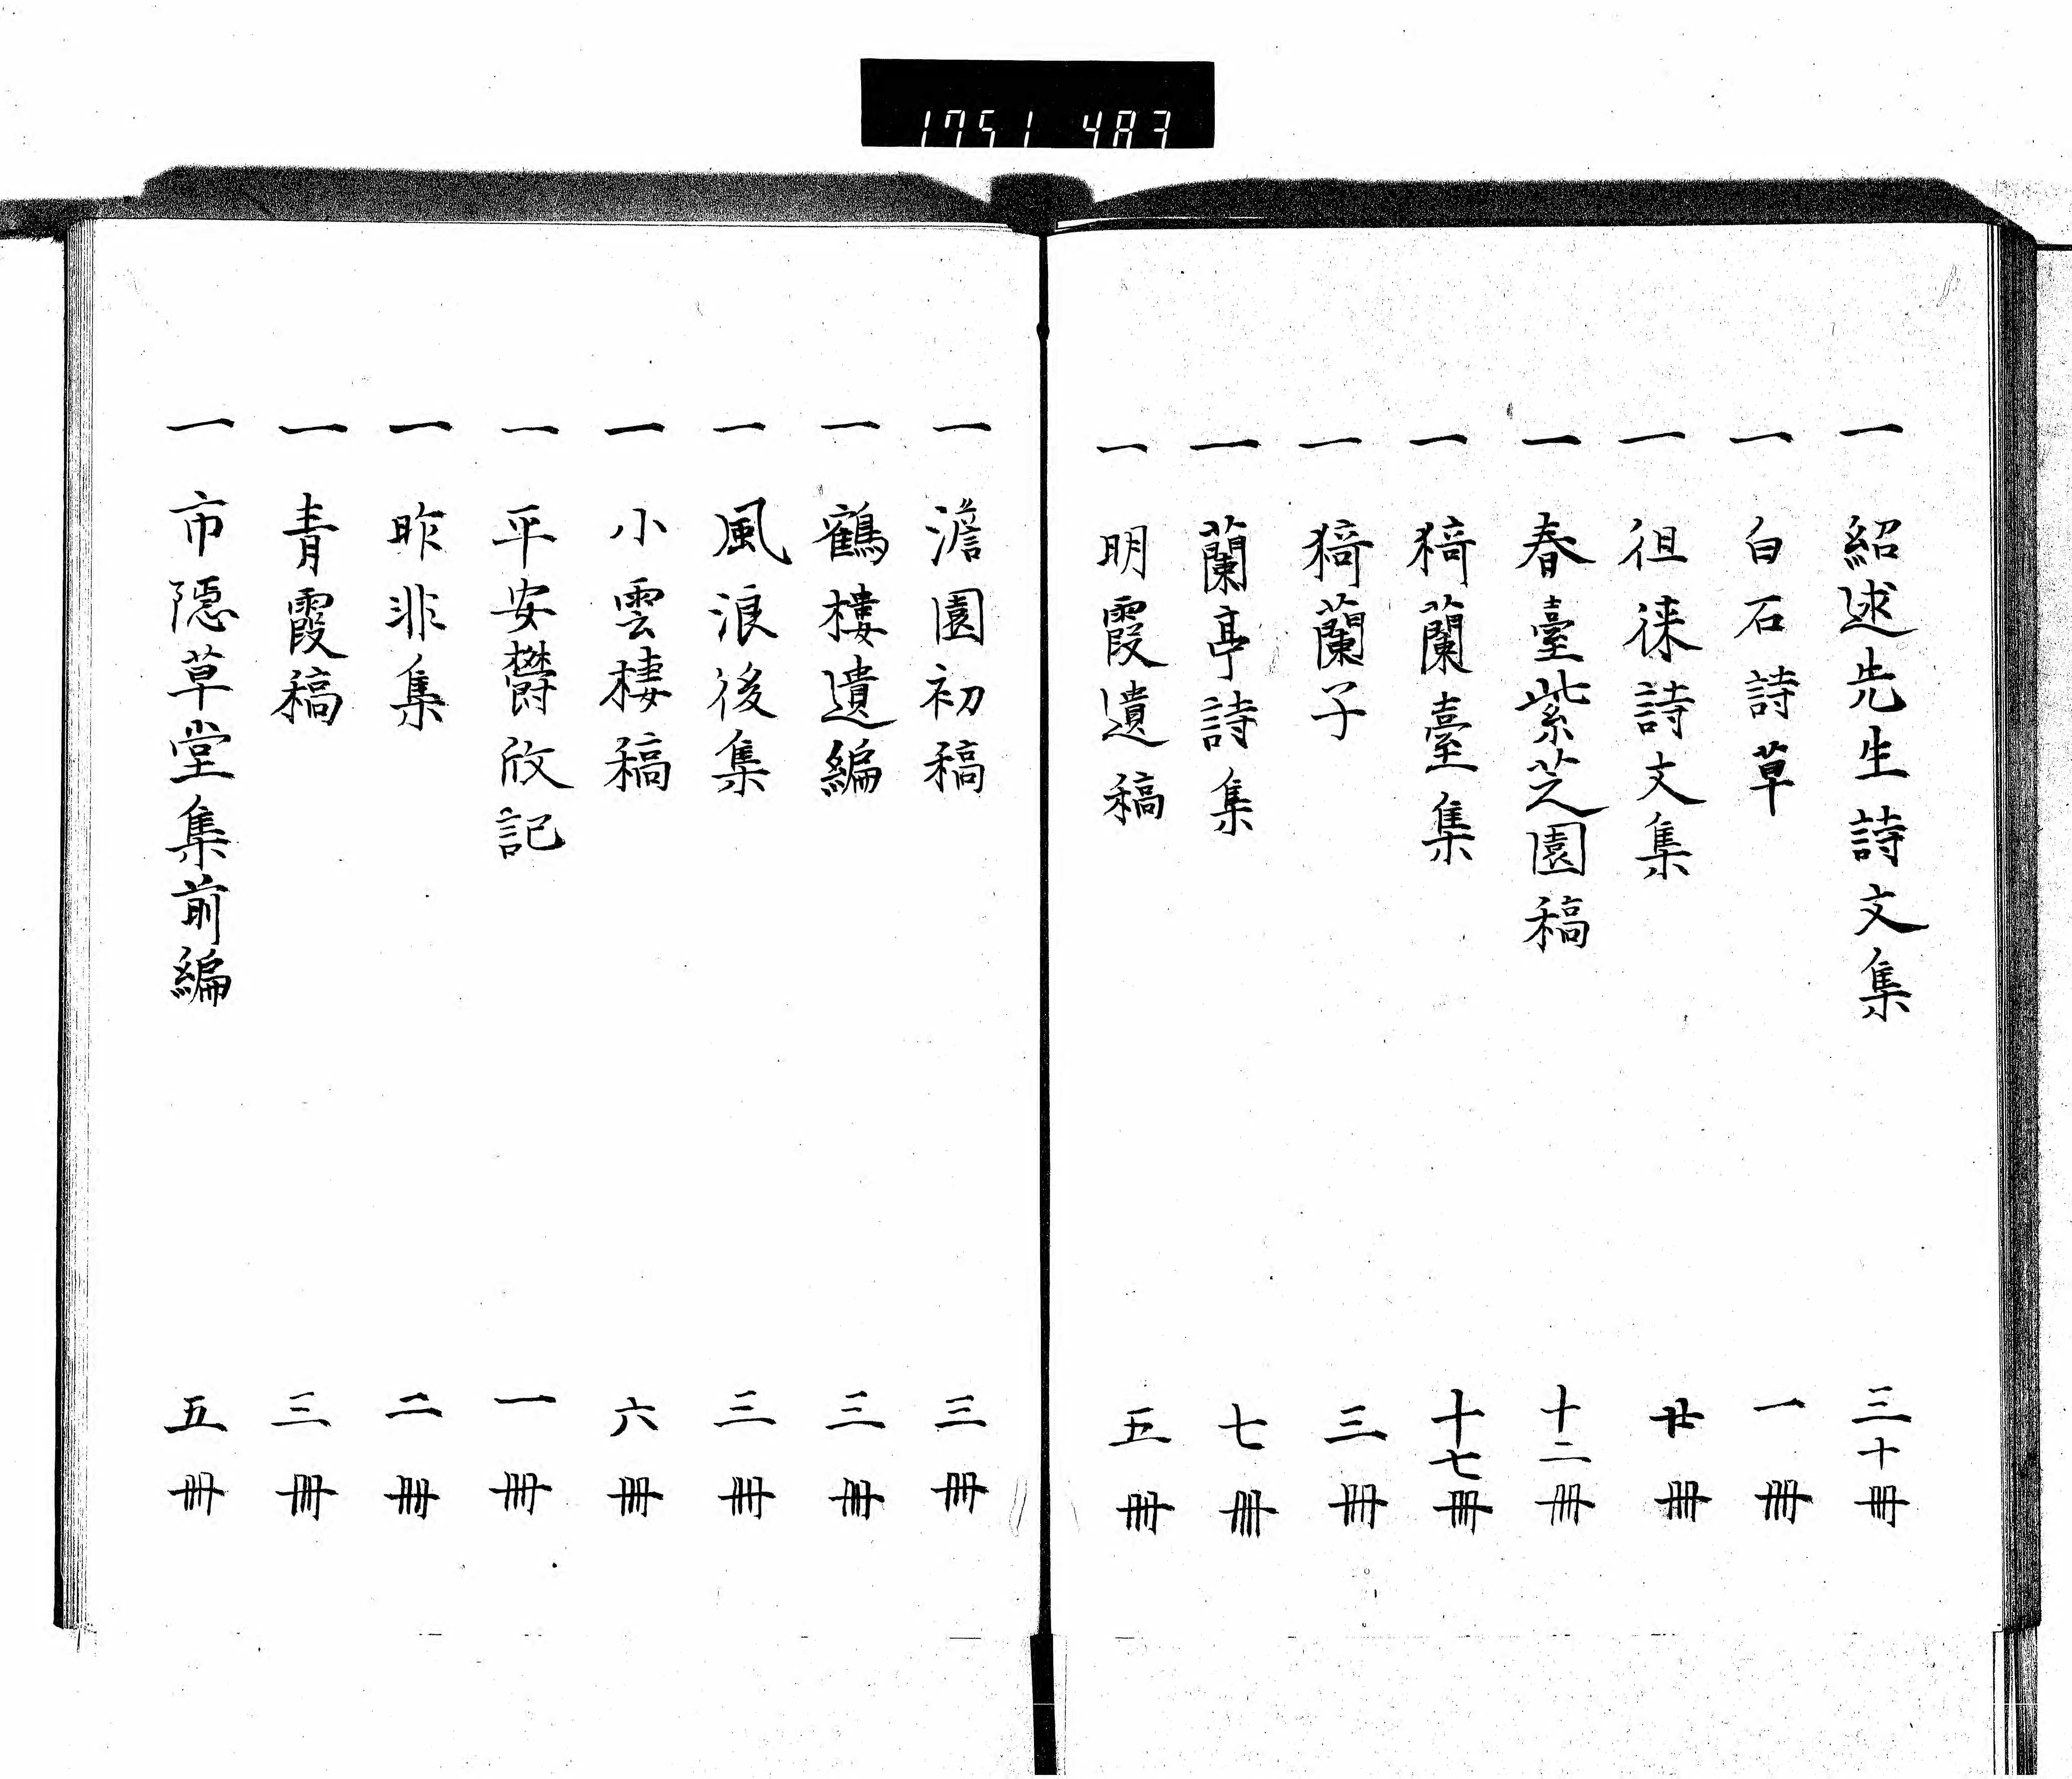 1751 483
一 紹述先生詩文集 三十冊
一 白石詩草 一冊
一 徂徠詩文集 廿冊
一 春臺紫芝園稿 十二冊
一 猗蘭臺集 十七冊
一 猗蘭子 三冊
一 蘭亭詩集 七冊
一 明霞遺稿 五冊
一 澹園初稿 三冊
一 鶴樓遺編 三冊
一 風浪後集 三冊
一 小雲棲稿 六冊
一 平安欝攸記 一冊
一 昨非集 二冊
一 青霞稿 三冊
一 市隠草堂集前編 五冊